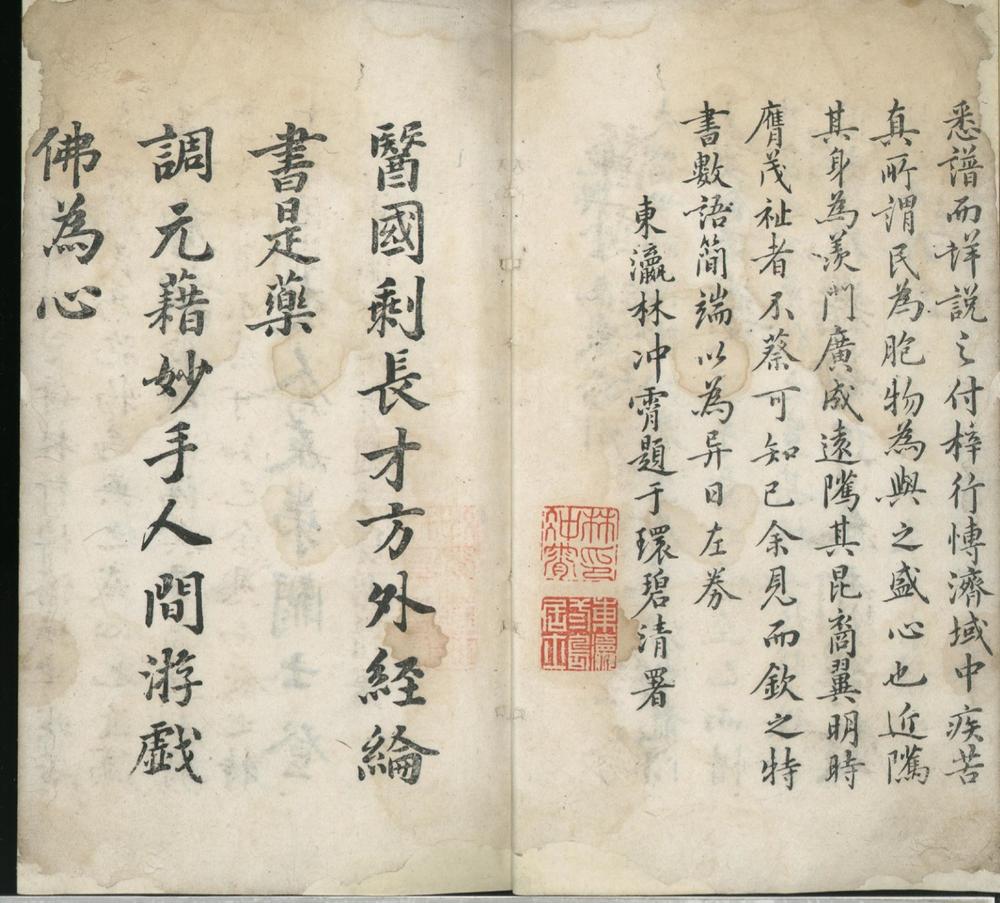 悉譜而詳説之付梓行愽濟域中疾苦
真所謂民為胞物為與之盛心也近隲
其身為羨門廣成遠隲其昆裔翼明時
膺茂祉者不蔡可知已余見而欽之特
書數語簡端以為异日左券
東瀛林冲霄題于環碧清署
醫國剩長才方外經綸
書是藥
調元藉妙手人間游戲
佛為心